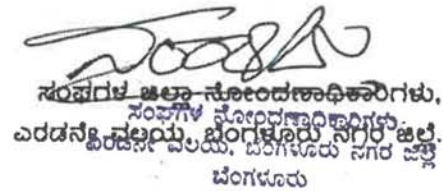 ಸಂಘಗಳ ಜಿಲ್ಲಾ ನೋಂದಣಾಧಿಕಾರಿಗಳು,
ಸಂಘಗಳ ನೋಂದಣಾಧಿಕಾರಿಗಳು.
ಎರಡನೇ ವಲಯ, ಬೆಂಗಳೂರು ನಗರ ಜಿಲ್ಲೆ.
ಎರಡನೇ ವಲಯ, ಬೆಂಗಳೂರು ನಗರ ಜಿಲ್ಲೆ
ಬೆಂಗಳೂರು